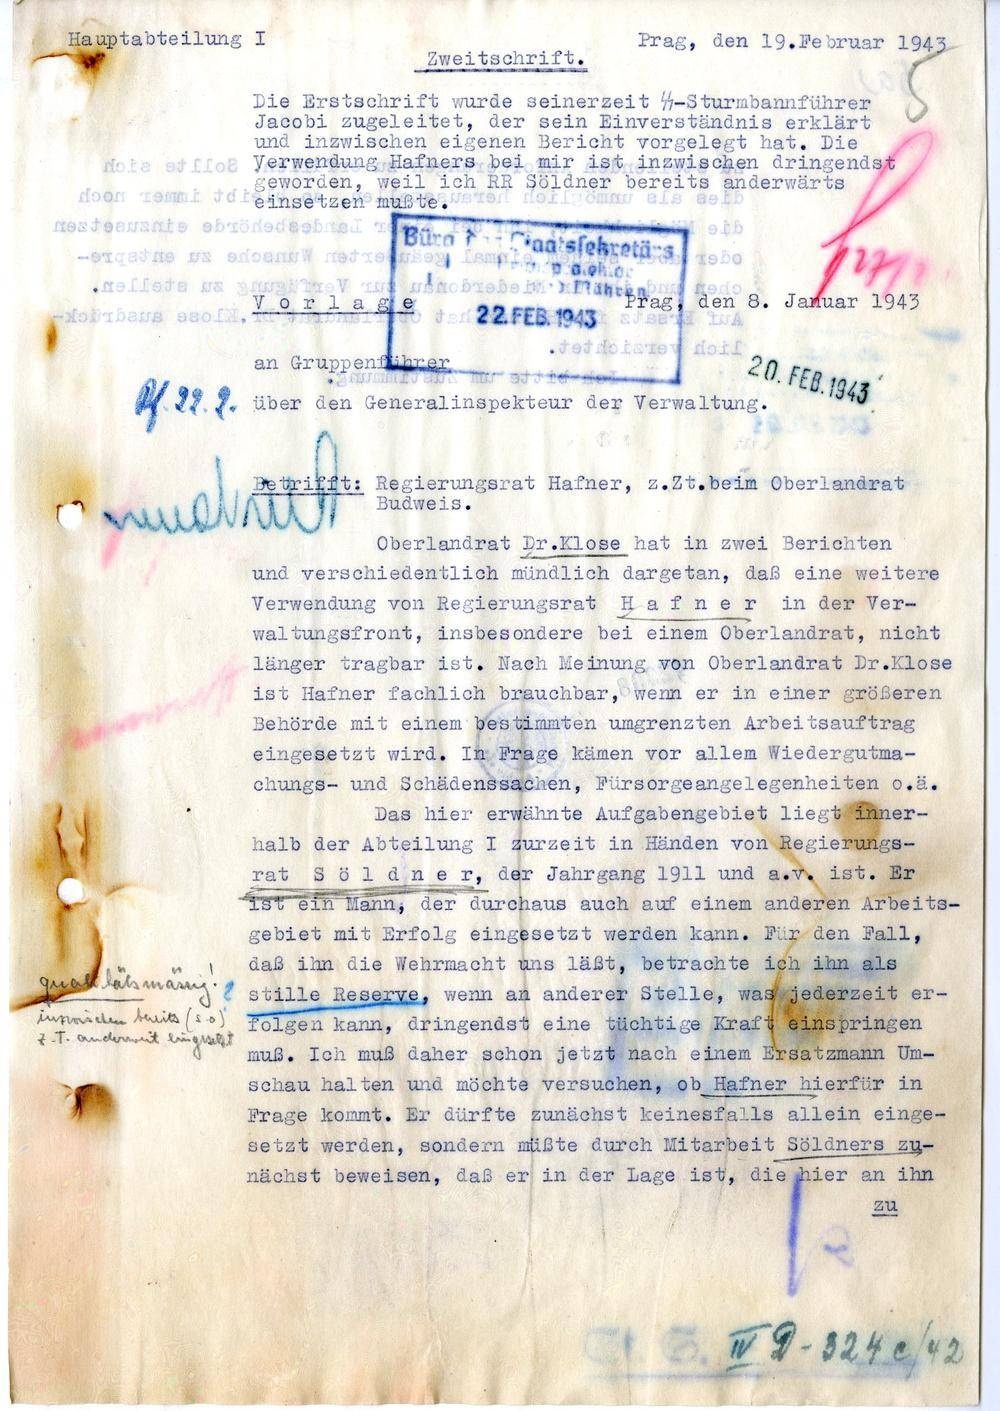 Hauptabteilung I
Prag, den 19.Februar 1943
5
Zweitschrift.
Die Erstschrift wurde seinerzeit ᛋᛋ-Sturmbannführer
Jacobi zugeleitet, der sein Einverständnis erklärt
und inzwischen eigenen Bericht vorgelegt hat. Die
Verwendung Hafners bei mir ist inzwischen dringendst
geworden, weil ich RR Söldner bereits anderwärts
einsetzen mußte.
Büro des Staatssekretärs
Mähren
22.FEB.1943
V o r l a g e
Prag, den 8. Januar 1943
an Gruppenführer
20. FEB. 1943
22.2.
über den Generalinspekteur der Verwaltung.
Betrifft: Regierungsrat Hafner, z.Zt.beim Oberlandrat
Budweis.
Oberlandrat Dr.Klose hat in zwei Berichten
und verschiedentlich mündlich dargetan, daß eine weitere
Verwendung von Regierungsrat H a f n e r in der Ver-
waltungsfront, insbesondere bei einem Oberlandrat, nicht
länger tragbar ist. Nach Meinung von Oberlandrat Dr.Klose
ist Hafner fachlich brauchbar, wenn er in einer größeren
Behörde mit einem bestimmten umgrenzten Arbeitsauftrag
eingesetzt wird. In Frage kämen vor allem Wiedergutma-
chungs- und Schädenssachen, Fürsorgeangelegenheiten o.ä.
Das hier erwähnte Aufgabengebiet liegt inner-
halb der Abteilung I zurzeit in Händen von Regierungs-
rat S ö l d n e r, der Jahrgang 1911 und a.v. ist. Er
ist ein Mann, der durchaus auch auf einem anderen Arbeits-
gebiet mit Erfolg eingesetzt werden kann. Für den Fall,
daß ihn die Wehrmacht uns läßt, betrachte ich ihn als
stille Reserve, wenn an anderer Stelle, was jederzeit er-
folgen kann, dringendst eine tüchtige Kraft einspringen
muß. Ich muß daher schon jetzt nach einem Ersatzmann Um-
schau halten und möchte versuchen, ob Hafner hierfür in
Frage kommt. Er dürfte zunächst keinesfalls allein einge-
setzt werden, sondern müßte durch Mitarbeit Söldners zu-
nächst beweisen, daß er in der Lage ist, die hier an ihn
zu
qualitätsmässig!
inzwischen bereits (s.o)
z.T. anderweit eingesetzt
IV D - 324 c/42